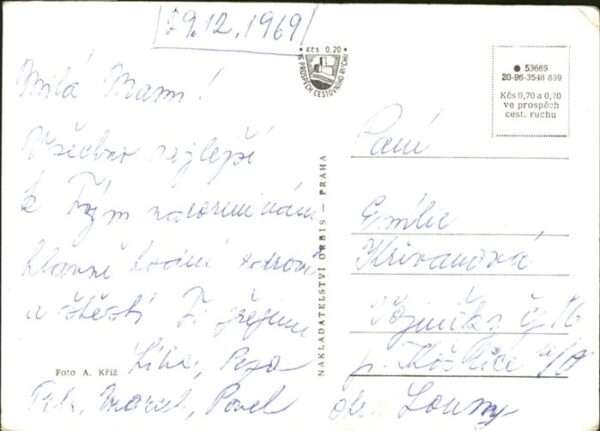 29.12.1969
Milá Mami!
Všechno nejlepší
k Tvým narozeninám
hlavně hodně zdraví
a štěstí Ti přejeme
Líba, Pepa
Marcel, Pavel
Foto A. Kříž
NAKLADATELSTVÍ ORBIS — PRAHA
• Kčs 0,20 •
VE PROSPĚCH CESTOVNÍHO RUCHU
• 53669
20-96-3548 859
Kčs 0,70 a 0,10
ve prospěch
cest. ruchu
Paní
Emílie
Křivanová
Vojničky č. 16
p. Koštice n/O
okr. Louny